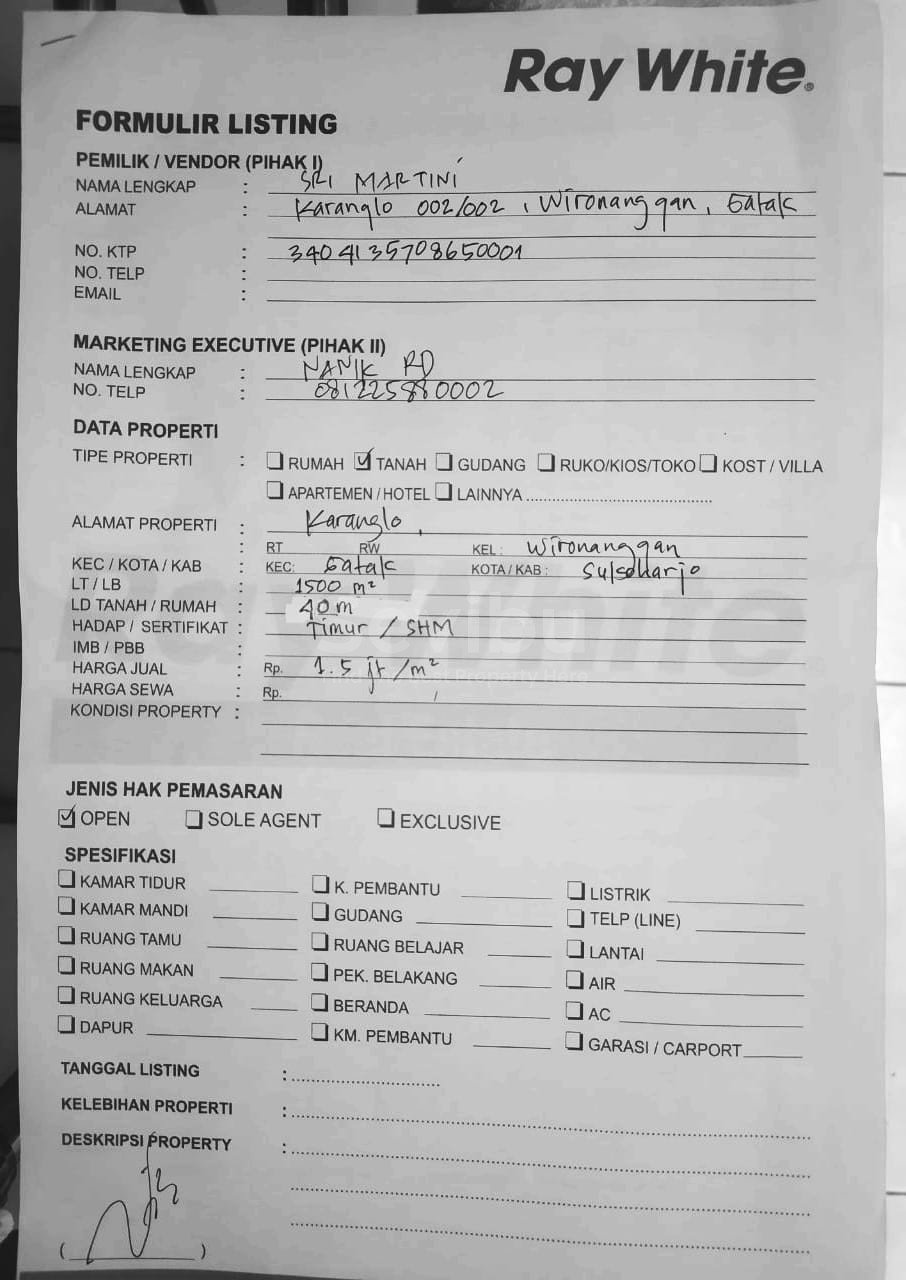 Ray White®
FORMULIR LISTING
PEMILIK / VENDOR (PIHAK I)
NAMA LENGKAP : SRI MARTINI
ALAMAT : Karanglo 002/002 , Wironanggan, Gatak
NO. KTP : 3404135708650001
NO. TELP :
EMAIL :
MARKETING EXECUTIVE (PIHAK II)
NAMA LENGKAP : NANIK RD
NO. TELP : 081225880002
DATA PROPERTI
TIPE PROPERTI : ☐ RUMAH ☑ TANAH ☐ GUDANG ☐ RUKO/KIOS/TOKO ☐ KOST / VILLA
☐ APARTEMEN / HOTEL ☐ LAINNYA ..............................
ALAMAT PROPERTI : Karanglo,
: RT RW KEL : Wironanggan
KEC / KOTA / KAB : KEC: Gatak KOTA / KAB : Sukoharjo
LT / LB : 1500 m²
LD TANAH / RUMAH : 40 m
HADAP / SERTIFIKAT : Timur / SHM
IMB / PBB :
HARGA JUAL : Rp. 1.5 jt /m²
HARGA SEWA : Rp.
KONDISI PROPERTY :
JENIS HAK PEMASARAN
☑ OPEN ☐ SOLE AGENT ☐ EXCLUSIVE
SPESIFIKASI
☐ KAMAR TIDUR ☐ K. PEMBANTU ☐ LISTRIK
☐ KAMAR MANDI ☐ GUDANG ☐ TELP (LINE)
☐ RUANG TAMU ☐ RUANG BELAJAR ☐ LANTAI
☐ RUANG MAKAN ☐ PEK. BELAKANG ☐ AIR
☐ RUANG KELUARGA ☐ BERANDA ☐ AC
☐ DAPUR ☐ KM. PEMBANTU ☐ GARASI / CARPORT
TANGGAL LISTING :
KELEBIHAN PROPERTI :
DESKRIPSI PROPERTY :
( )